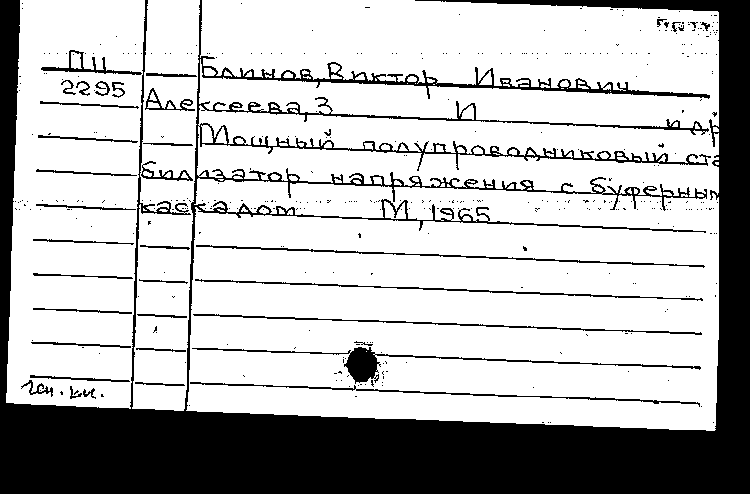 ПЦ Блинов, Виктор Иванович
2295 Алексеева, З И и др
Мощный полупроводниковый ста
билизатор напряжения с буферным
каскадом. М, 1965